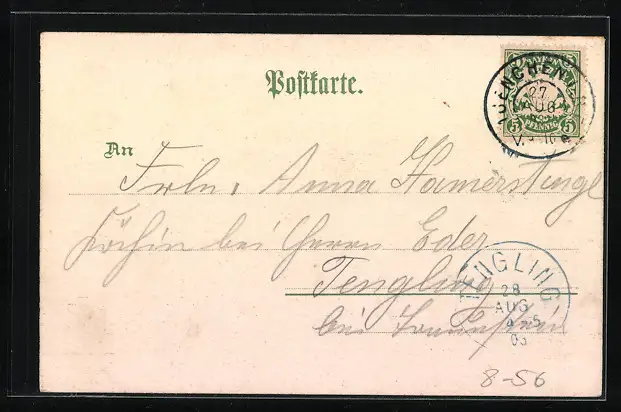 Postkarte.
BAYERN
5 PFENNIG 5
MUENCHEN
27.
AUG
An
Frln. Anna
Köchin bei Herrn Eder
Tengling
bei Traunstein
TENGLING
28
AUG
03
8-56